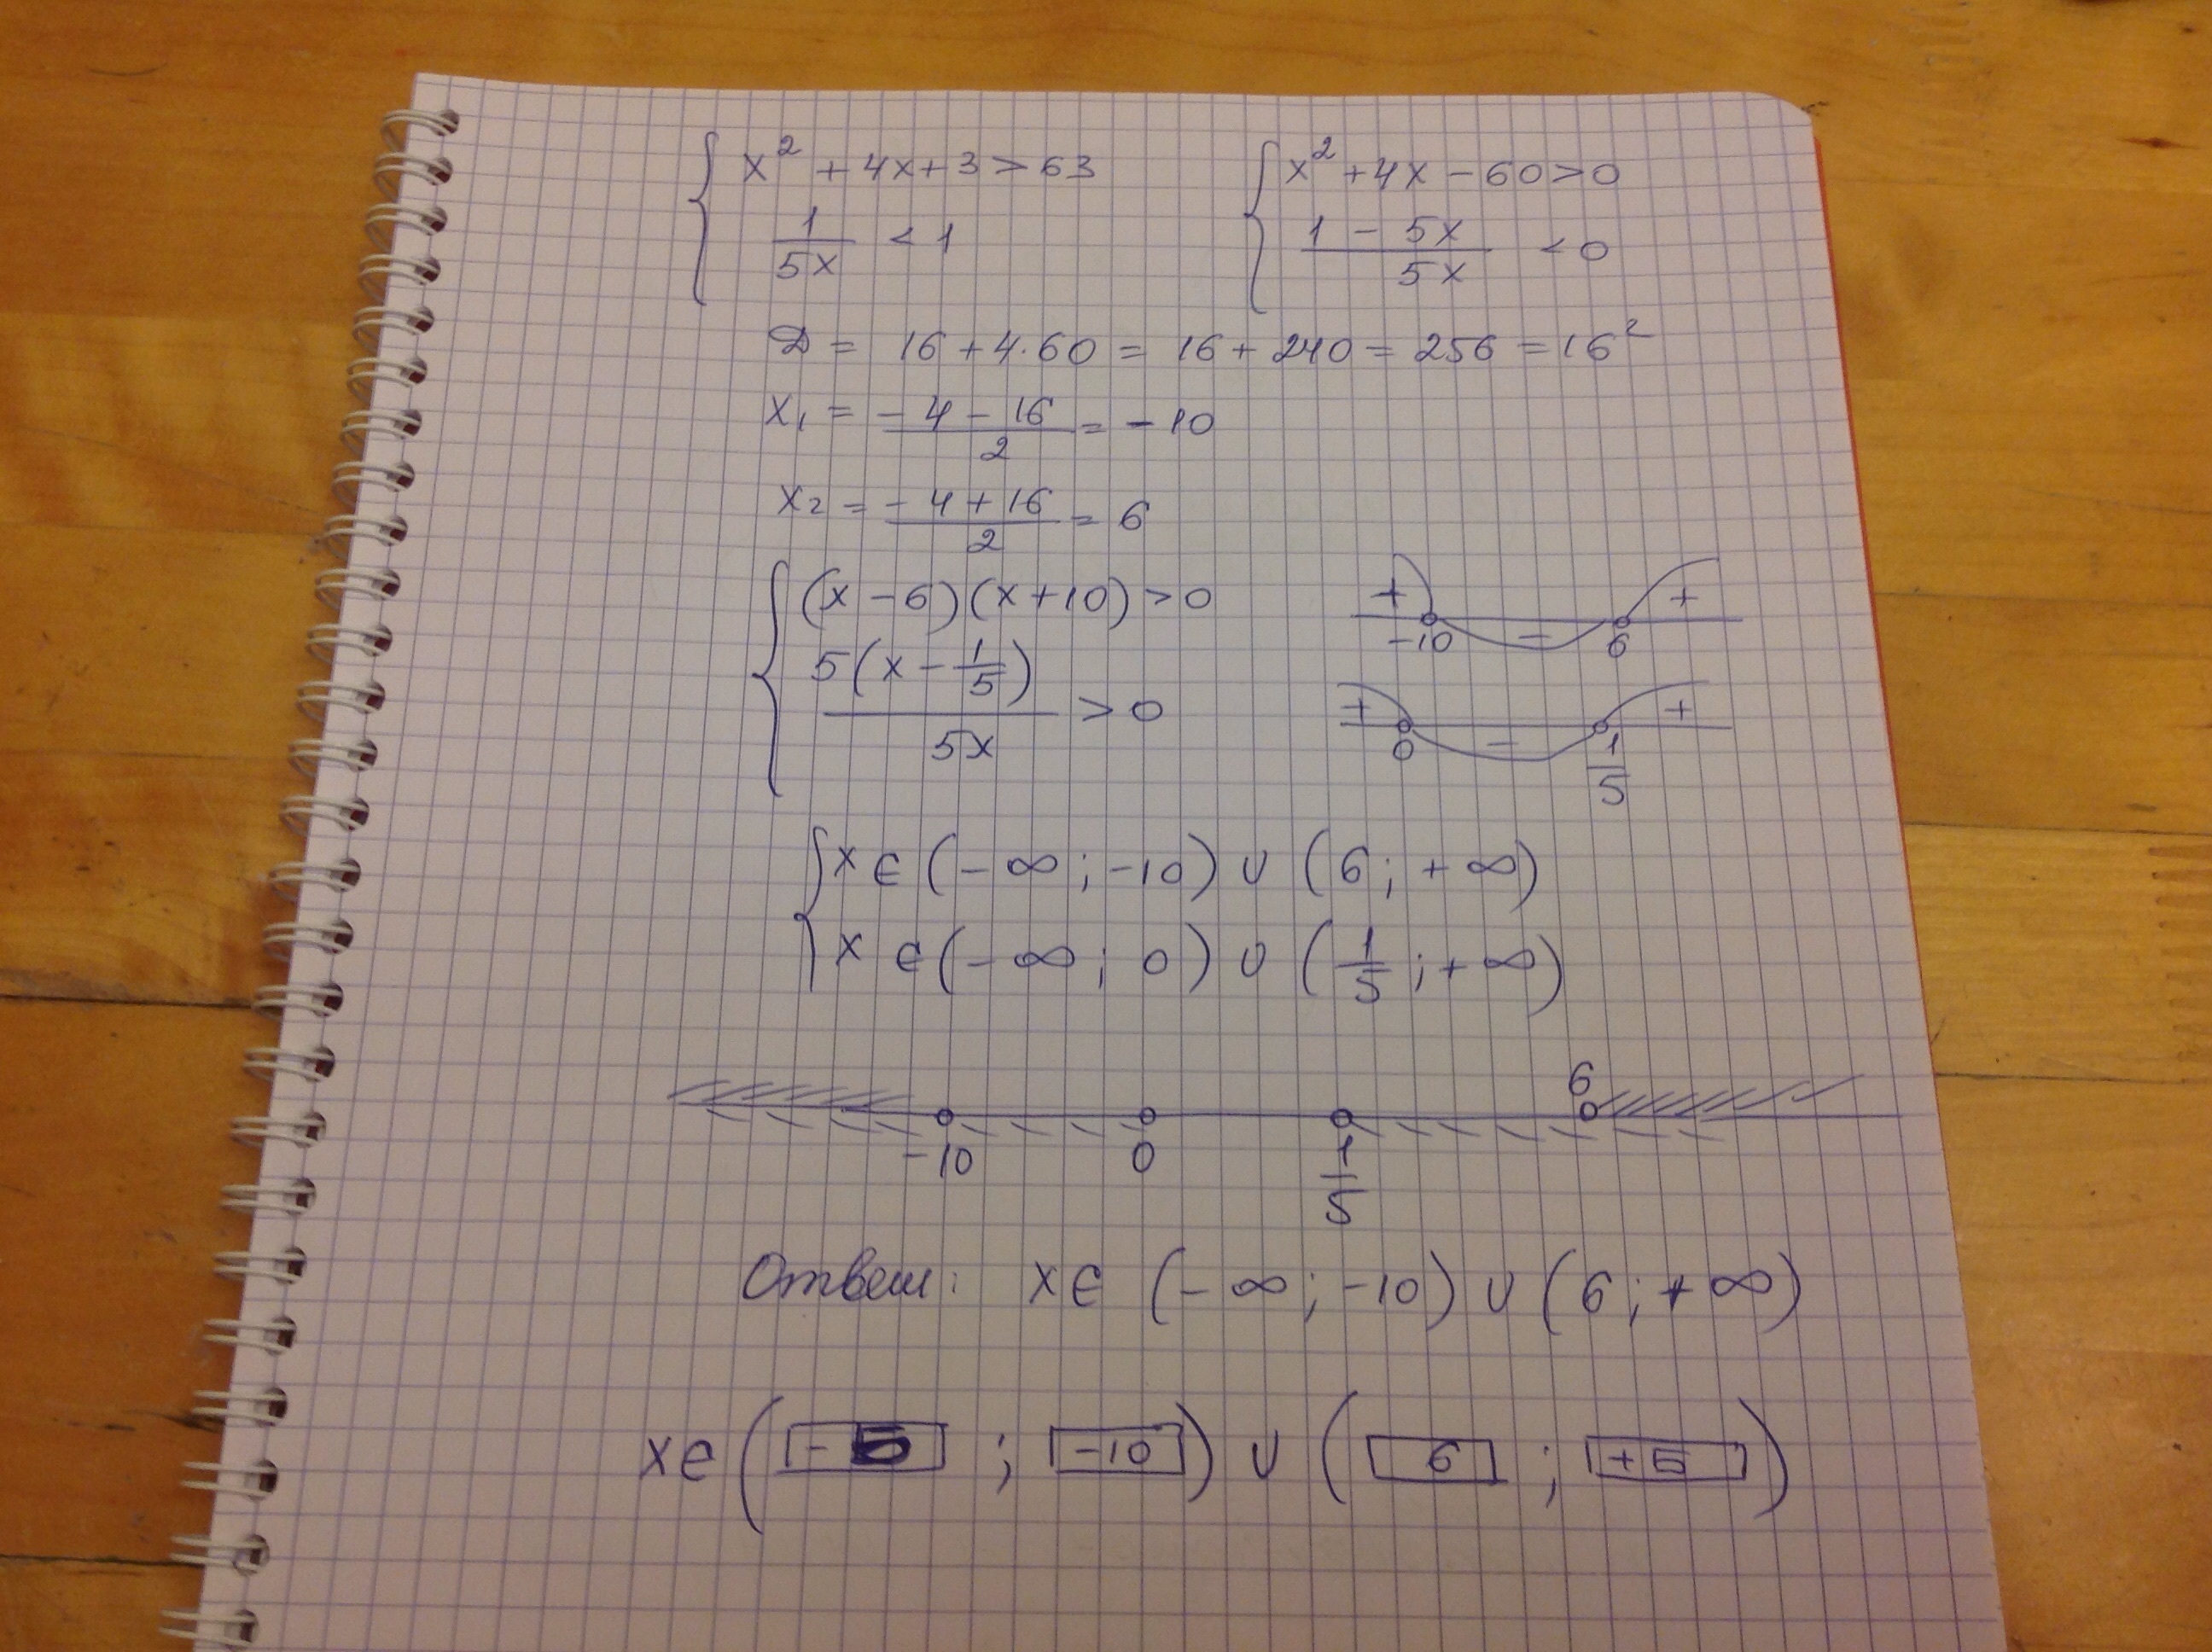 { x² + 4x + 3 > 63   { x² + 4x - 60 > 0
1/5x < 1   (1 - 5x)/5x < 0
D = 16 + 4·60 = 16 + 240 = 256 = 16²
x₁ = (-4 - 16)/2 = -10
x₂ = (-4 + 16)/2 = 6
{ (x - 6)(x + 10) > 0   + -10 - 6 +
5(x - 1/5)/5x > 0   + 0 - 1/5 +
{ x ∈ (-∞; -10) ∪ (6; +∞)
x ∈ (-∞; 0) ∪ (1/5; +∞)
-10 0 1/5 6
Ответ: x ∈ (-∞; -10) ∪ (6; +∞)
x ∈ (-5; -10) ∪ (6; +5)